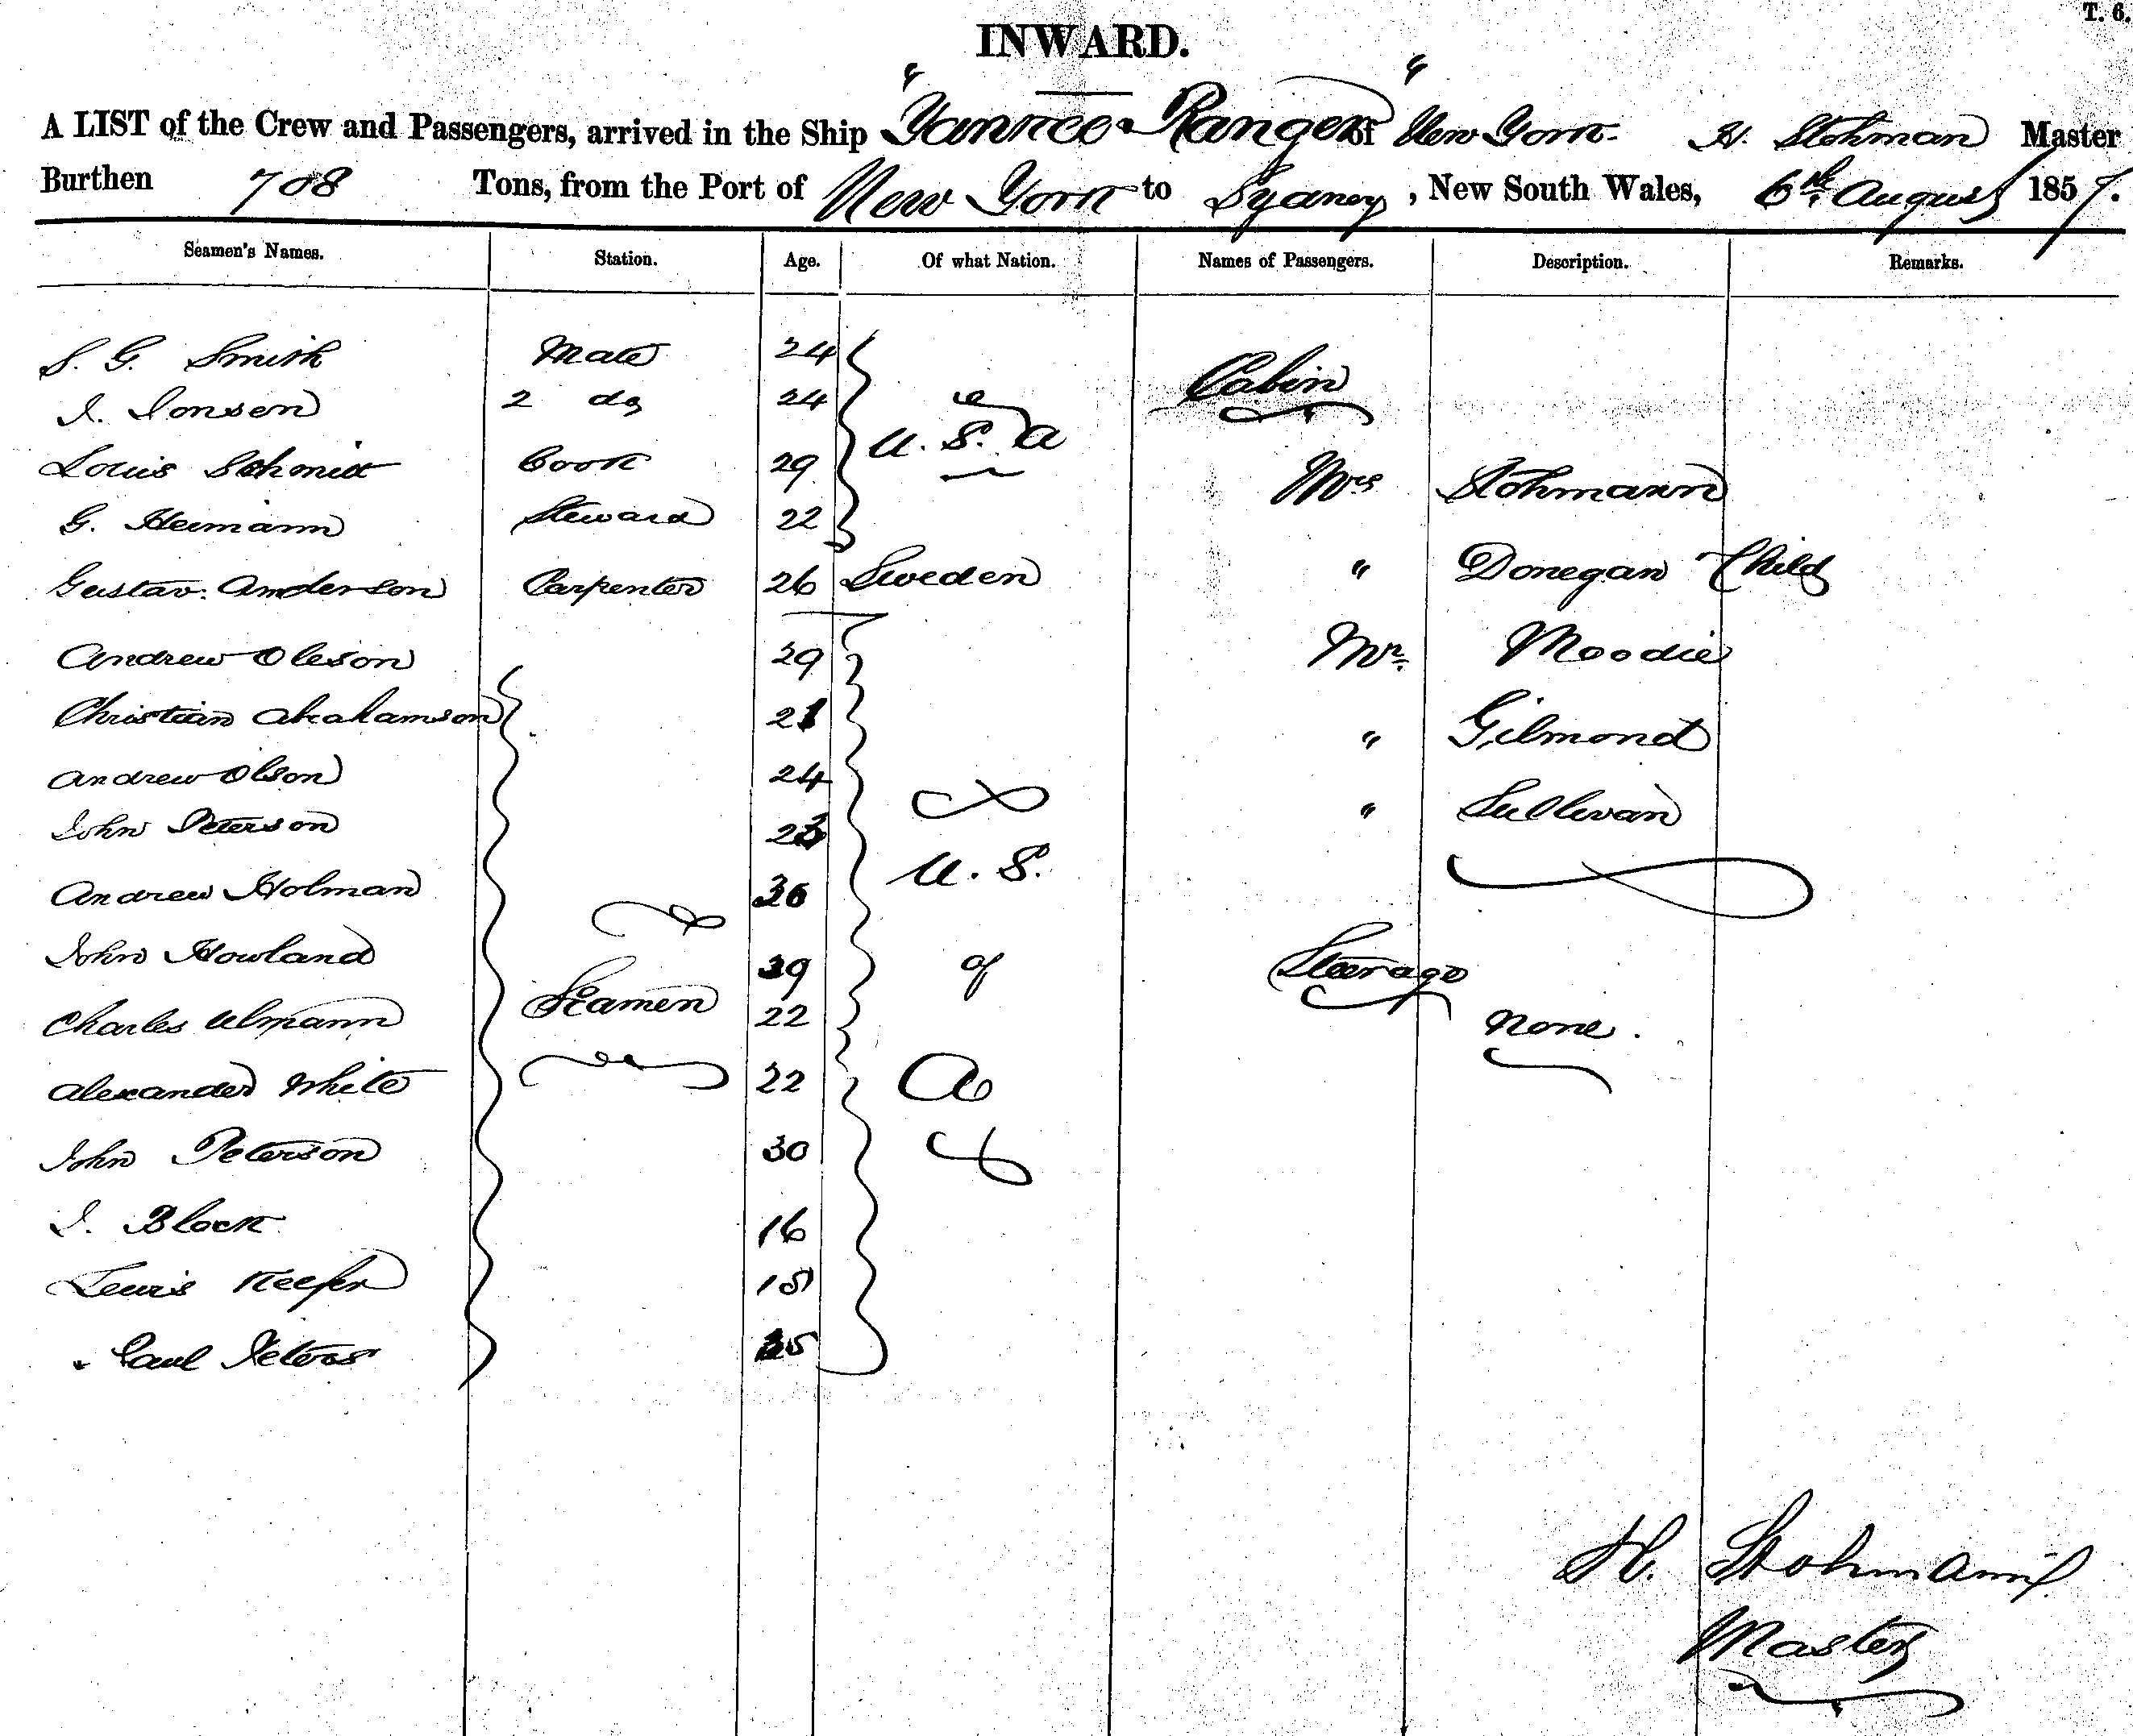 T. 6.
INWARD.
A LIST of the Crew and Passengers, arrived in the Ship "Yankee Ranger" of New York. H. Stohman Master
Burthen 708 Tons, from the Port of New York to Sydney, New South Wales, 6th August 1857.
Seamen's Names. Station. Age. Of what Nation. Names of Passengers. Description. Remarks.
S. G. Smith Mate 24
Cabin
I. Jonsen 2 do 24
U. S. A
Louis Schmidt Cook 29 Mrs Stohmann
G. Heimann Steward 22
Gustav. Anderson Carpenter 26 Sweden " Donegan Child
Andrew Oleson 29 Mr. Moodie
Christian Abrahamson 21 " Gilmond
Andrew Olson 24
John Peterson 23 " Sullivan
U. S.
Andrew Holman 36
John Howland 39 of Steerage
Charles Ulmann Seamen 22 none.
Alexander White 22 A
John Peterson 30
J. Block 16
Lewis Keefer 18
Paul Peters 25
H. Stohmann
Master